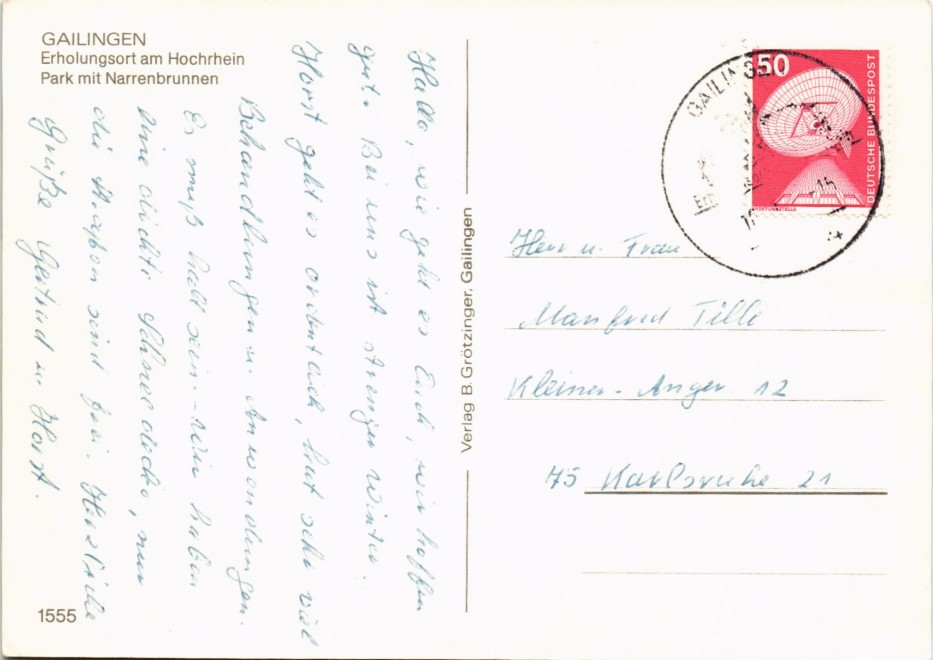 GAILINGEN
Erholungsort am Hochrhein
Park mit Narrenbrunnen
Hallo, wie geht es Euch, wir hoffen
gut. Bei uns ist strenger Winter.
Horst geht es ordentlich, hat sehr viel
Behandlungen u. Anwendungen.
Es muß halt sein. - Wir haben
eine dichte Schneedecke, nur
die Straßen sind frei. Herzliche
Grüße Gertrud u. Horst.
1555
Verlag B. Grötzinger, Gailingen
50
DEUTSCHE BUNDESPOST
GAILINGEN
Herr u. Frau
Manfred Tille
Kleiner-Anger 12
75 Karlsruhe 21